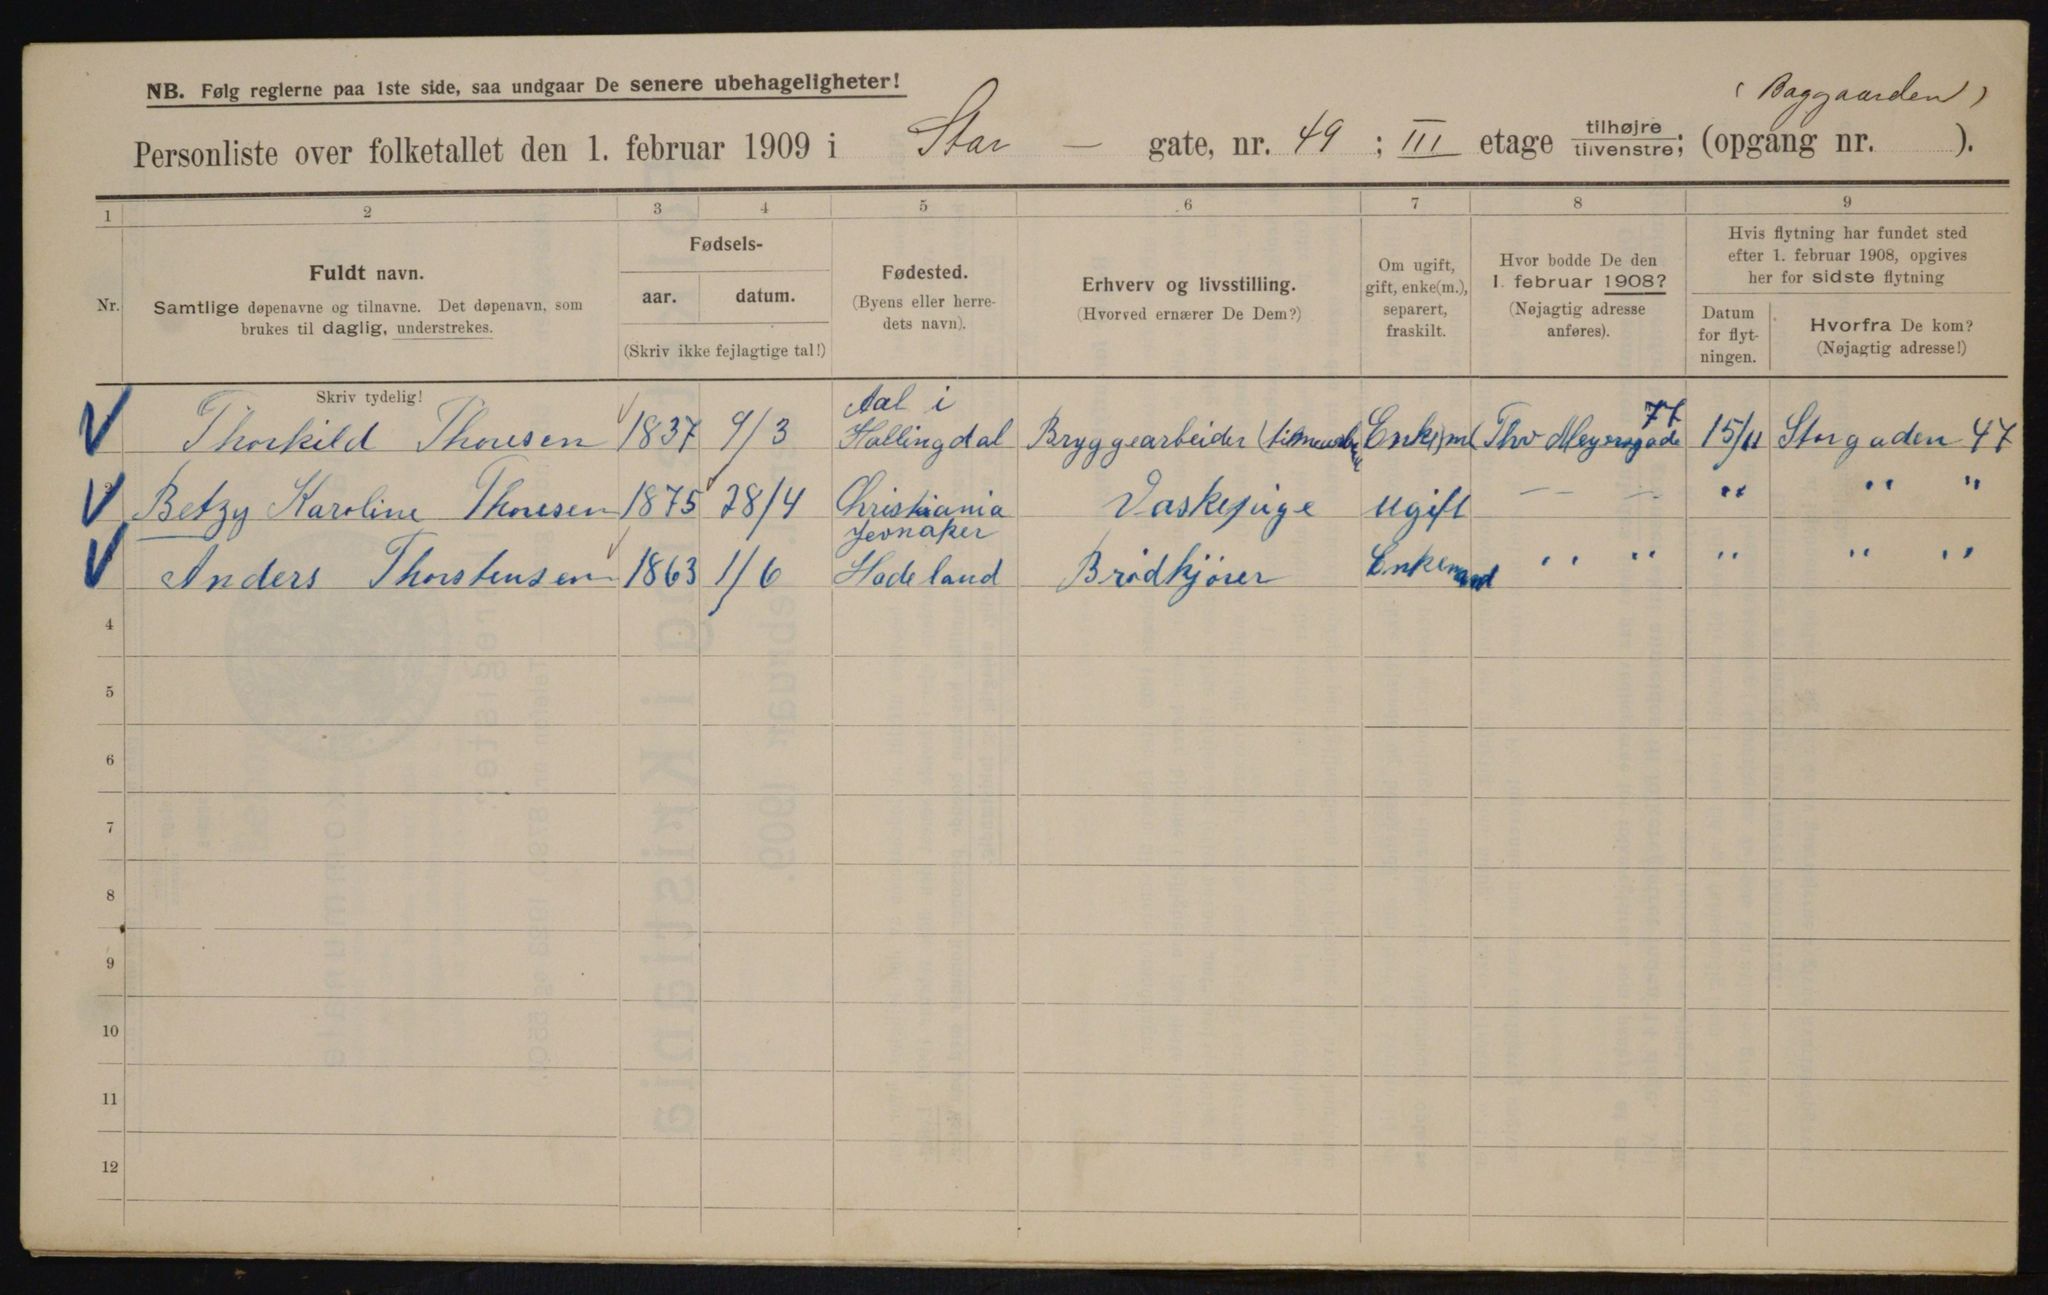 NB. Følg reglerne paa 1ste side, saa undgaar De senere ubehageligheter!
(Baggaarden)
Personliste over folketallet den 1. februar 1909 i Stor - gate, nr. 49; III etage tilhøjre tilvenstre; (opgang nr. ).
1 2 3 4 5 6 7 8 9
Nr.
Fuldt navn.
Samtlige døpenavne og tilnavne. Det døpenavn, som
brukes til daglig, understrekes.
Fødsels-
aar. datum.
(Skriv ikke fejlagtige tal!)
Fødested.
(Byens eller herre-
dets navn).
Erhverv og livsstilling.
(Hvorved ernærer De Dem?)
Om ugift,
gift, enke(m.),
separert,
fraskilt.
Hvor bodde De den
1. februar 1908?
(Nøjagtig adresse
anføres).
Hvis flytning har fundet sted
efter 1. februar 1908, opgives
her for sidste flytning
Datum
for flyt-
ningen.
Hvorfra De kom?
(Nøjagtig adresse!)
Skriv tydelig!
Thorkild Thoresen 1837 9/3 Aal i Hallingdal Bryggearbeider Enke(m( Thv Meyersgade 77 15/11 Storgaden 47
Betzy Karoline Thoresen 1875 28/4 Christiania Vaskepige ugift — — " " "
Anders Thorstensen 1863 1/6 Jevnaker Hadeland Brødkjører Enkemand " " " " "
4
5
6
7
8
9
10
11
12